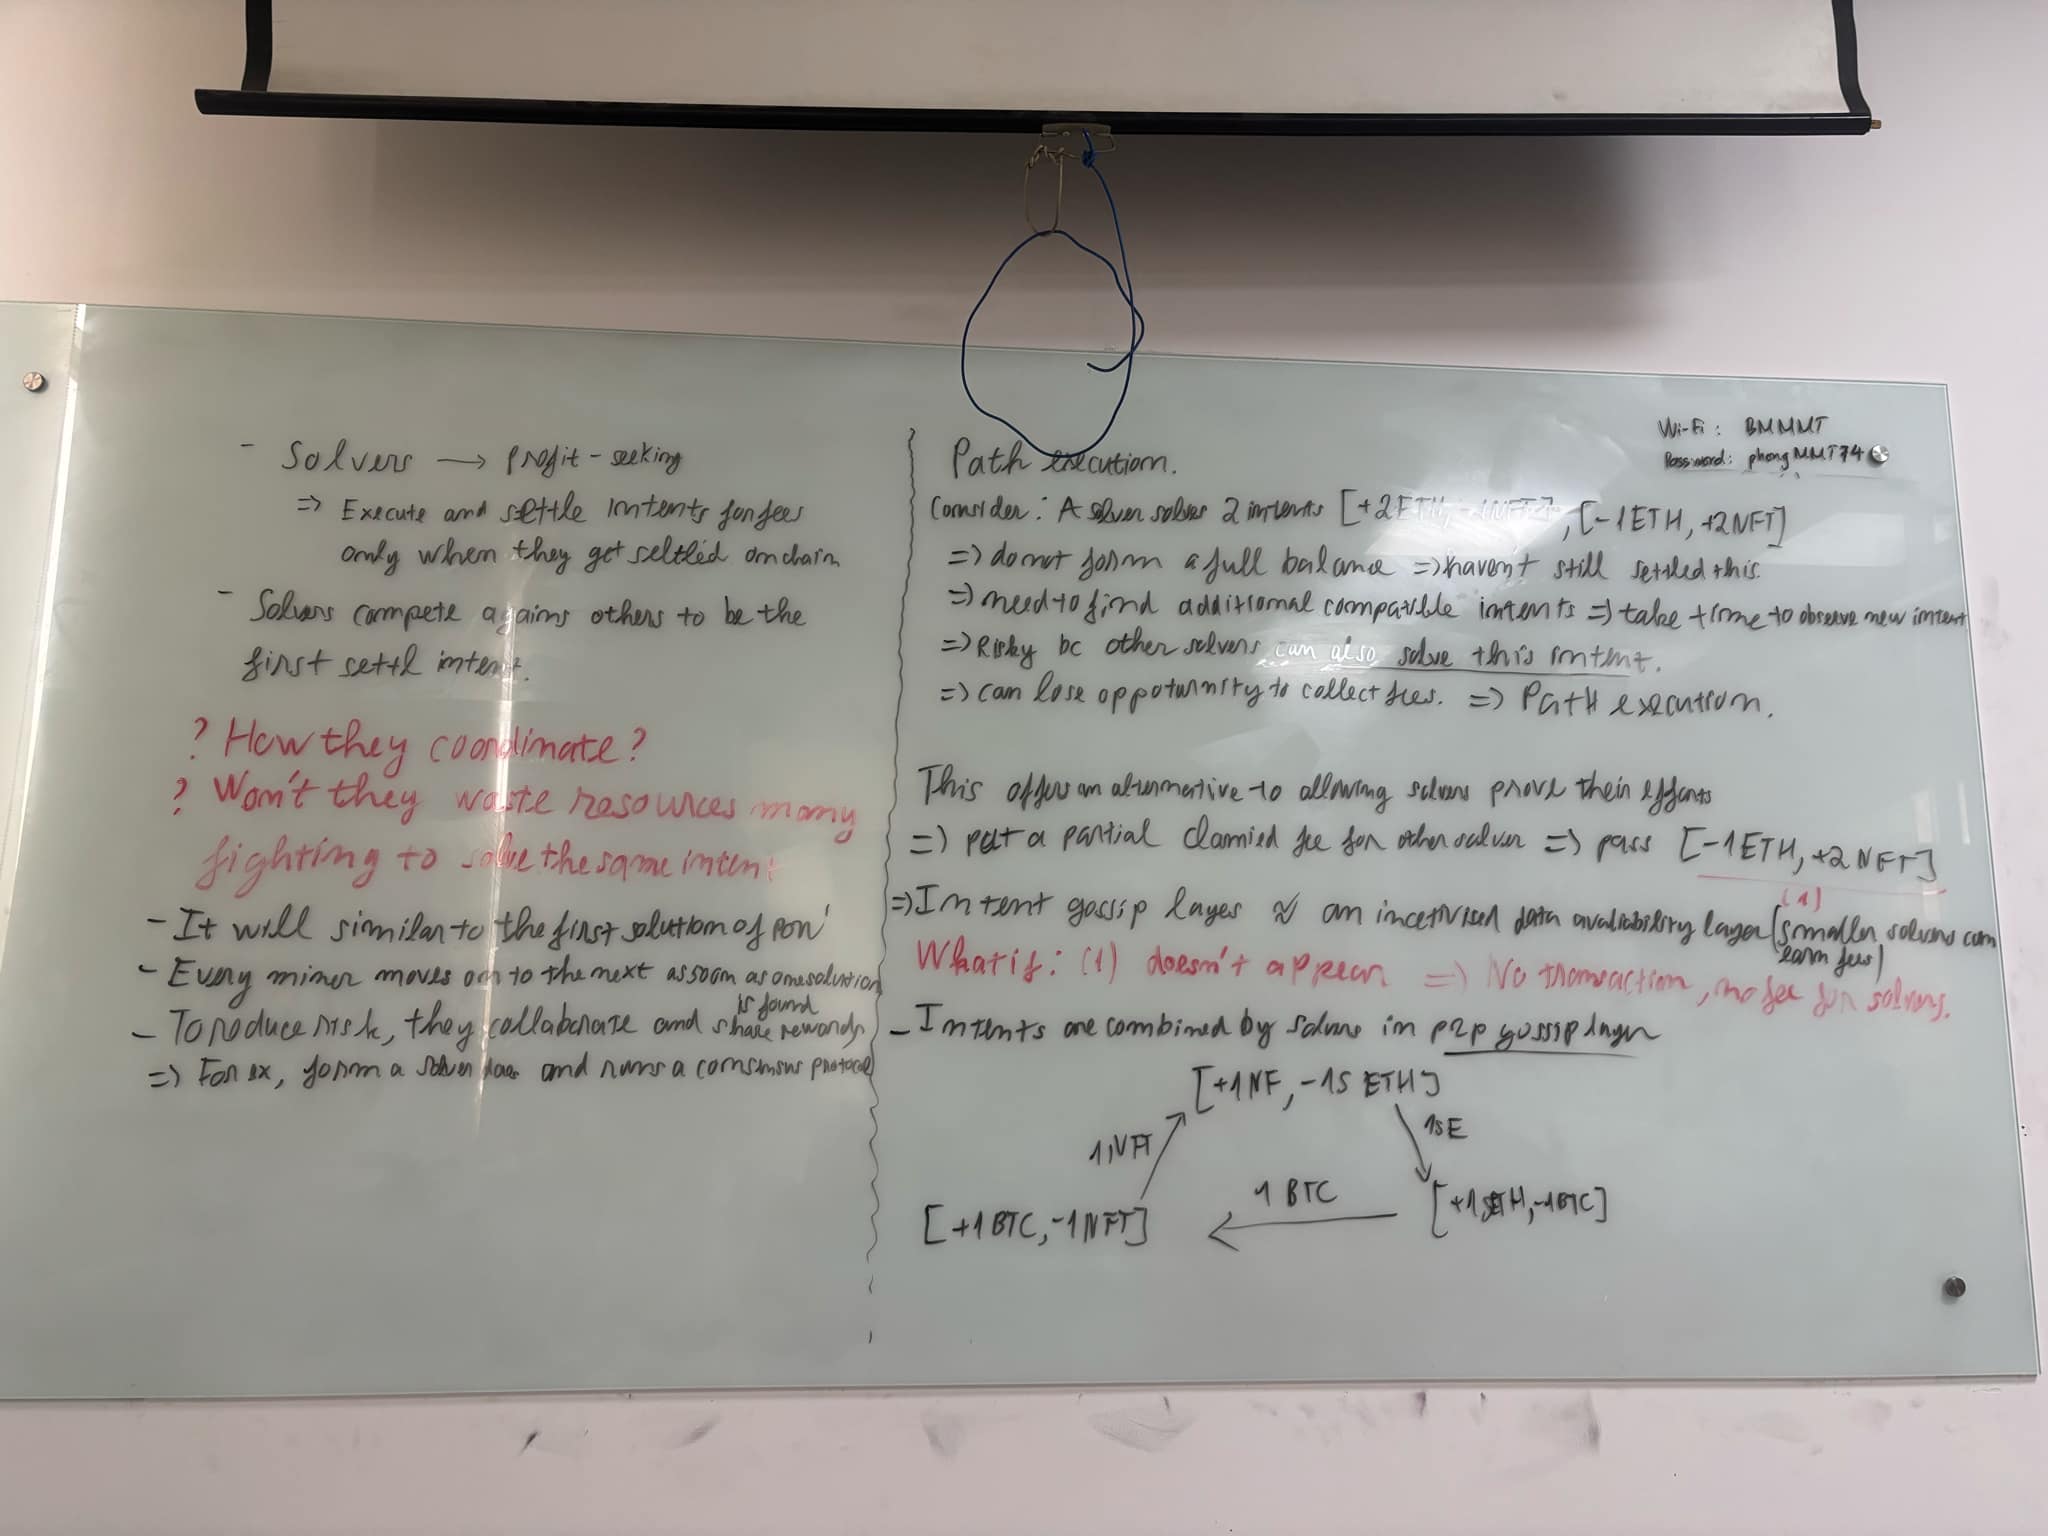 - Solvers → profit-seeking
=> Execute and settle intents for fees
only when they get seltled onchain
- Solvers compete agains others to be the
first settl intent.
? How they coordinate?
? Won't they waste resources many
fighting to solve the same intent
- It will similar to the first solution of pow
- Every miner moves on to the next as soon as one solution
is found
- To roduce risk, they collaborate and share rewards
=> For ex, form a solver daos and runs a consensus protocol
Path execution.
Consider: A solver solves 2 intents [+2ETH, -1NFT], [-1ETH, +2NFT]
=> do not form a full balance => haven't still settled this.
=> need to find additional compatible intents => take time to observe new intent
=> Risky bc other solvers can also solve this intent.
=> can lose oppotunity to collect fees. => Path execution.
This offers an alternative to allowing solvers prove their efforts
=> put a partial claimied fee for other solver => pass [-1ETH, +2NFT]
(1)
=> Intent gossip layes ≈ an incetivised data avaliability layer (smaller solvers can
earn fees)
What if: (1) doesn't appear => No transaction, no fee for solvers.
- Intents are combined by solvers in p2p gossip layer
[+1NF, -1S ETH]
1NFT
1SE
[+1BTC, -1NFT]
1 BTC
[+1SETH, -1BTC]
Wi-Fi: BMMMT
Password: phongMMT74